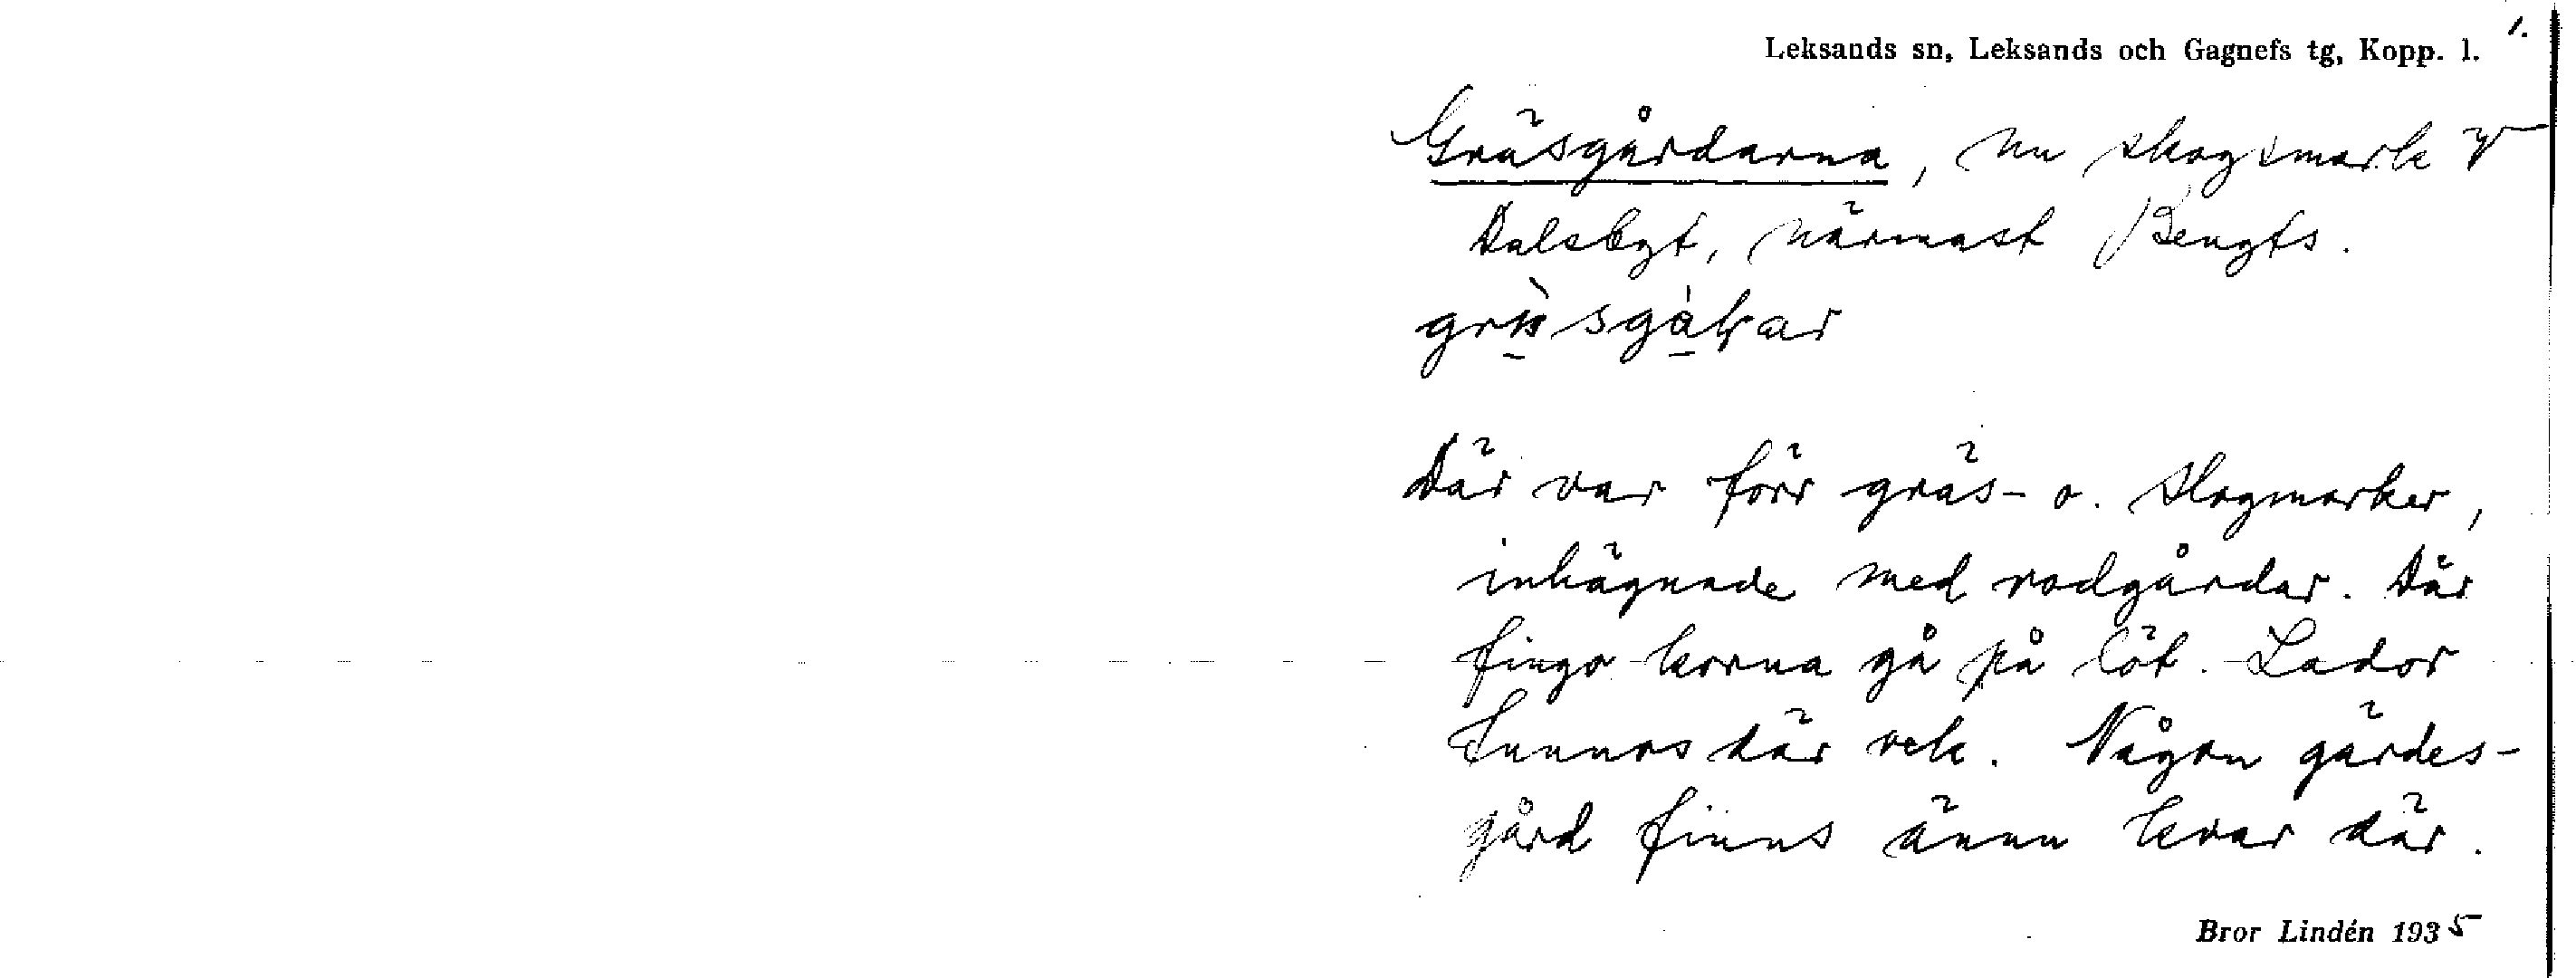 Leksands sn, Leksands och Gagnefs tg, Kopp. l. 1.
Gräsgårdarna, nu skogsmark V
Dalsbyt, närmast Bengts.
Där var förr gräs- o. slogmarker,
inhägnade med rodgårdar. Där
fingo korna gå på löt. Lador
funnos där vek. Någon gärdes-
gård finns ännu kvar där.
Bror Lindén 1935